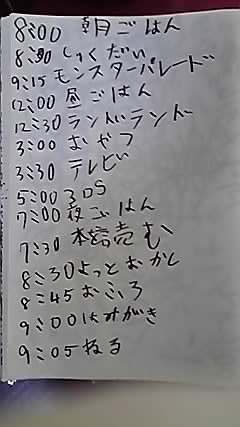 8:00 朝ごはん
8:30 しゅくだい
9:15 モンスターパレード
12:00 昼ごはん
12:30 ランドランド
3:00 おやつ
3:30 テレビ
5:00 3DS
7:00 夜ごはん
7:30 本読む
8:30 よっとおかし
8:45 おふろ
9:00 はみがき
9:05 ねる